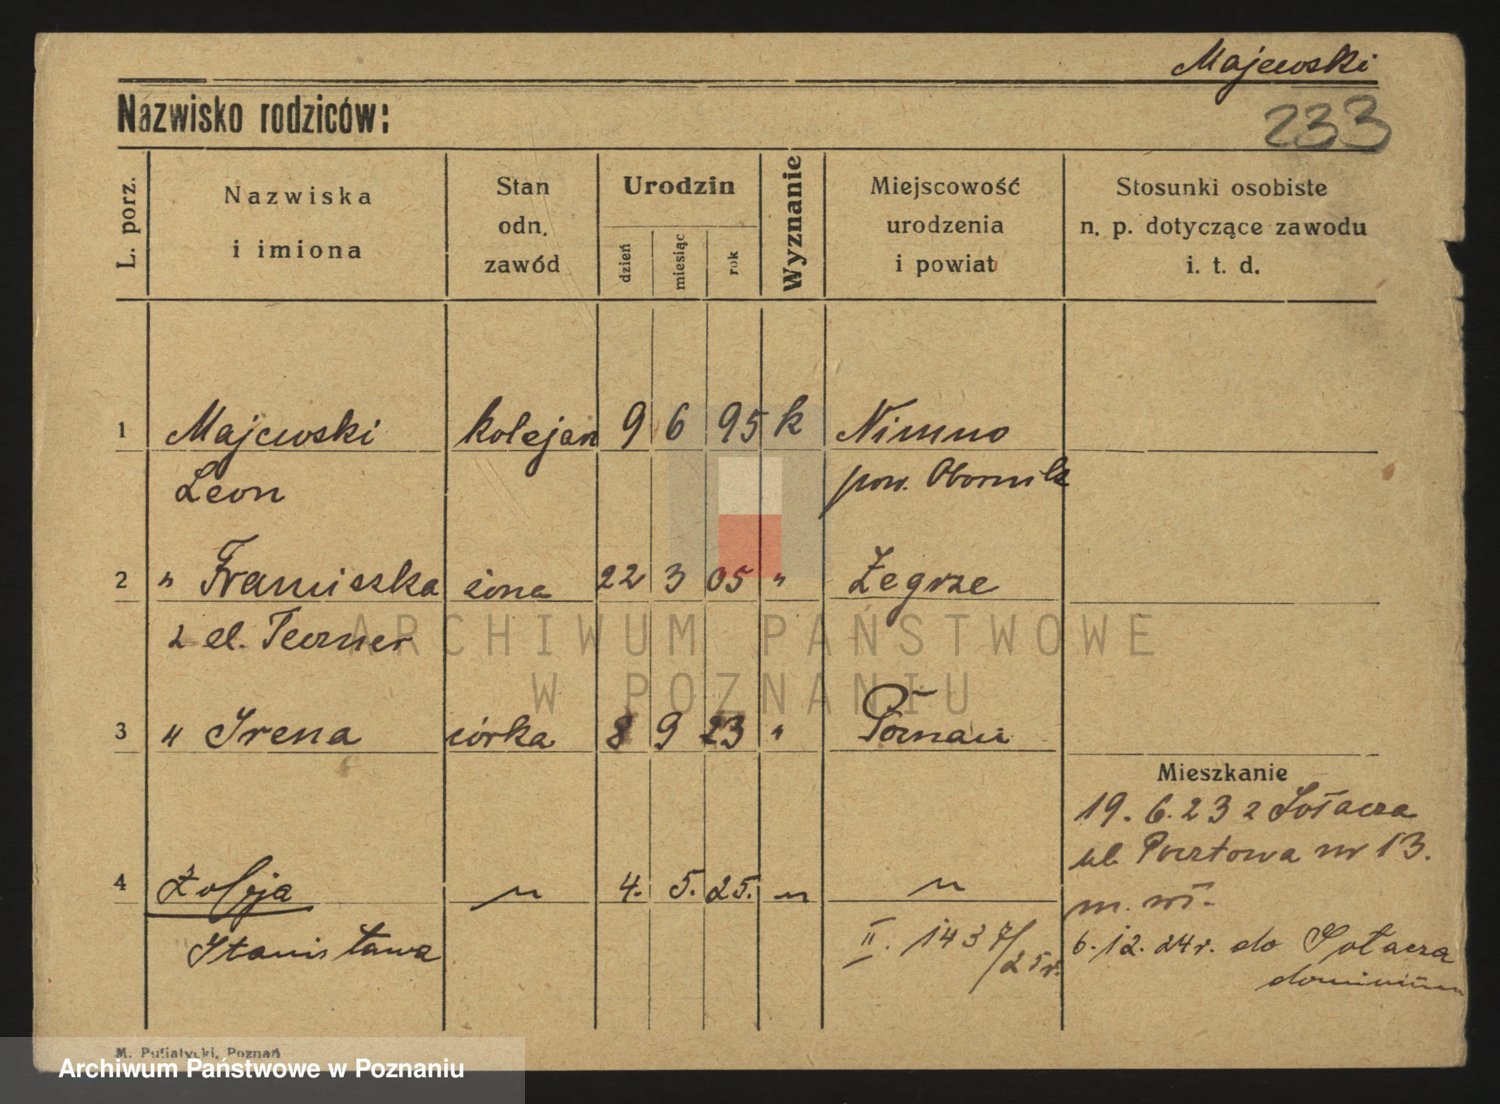 Majewski
Nazwisko rodziców:
233
L. porz.
Nazwiska
i imiona
Stan
odn.
zawód
Urodzin
dzień
miesiąc
rok
Wyznanie
Miejscowość
urodzenia
i powiat
Stosunki osobiste
n. p. dotyczące zawodu
i. t. d.
1 Majewski kolejarz 9 6 95 k Nimno
Leon pow. Obornik
2 " Franciszka żona 22 3 05 " Żegrze
z d.
3 " Irena córka 8 9 23 " Poznań
Mieszkanie
19. 6. 23 z Sołacza
ul. Pocztowa nr 13.
4 Zofja " 4. 5. 25. " "
m. wł.
Stanisława II. 1437/25r. 6. 12. 24r. do Sołacza
dominium
M. Putiatycki, Poznań
ARCHIWUM PAŃSTWOWE
W POZNANIU
Archiwum Państwowe w Poznaniu